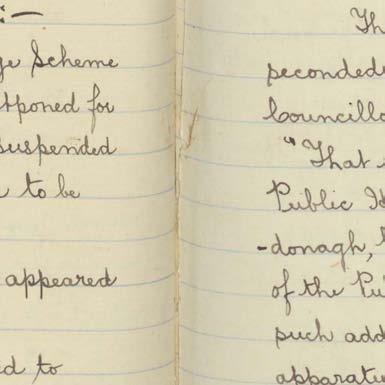 :—
ge Scheme
tponed for
suspended
to be
appeared
ed to
Th
seconded
Councillo
"That
Public H
-donagh,
of the Pu
such add
apparatu